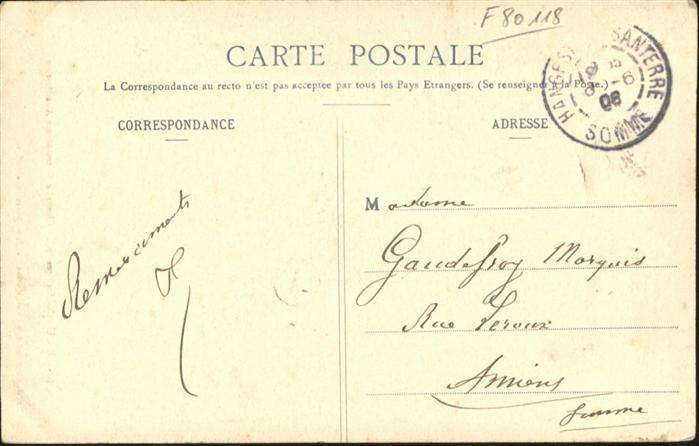 F 80118
CARTE POSTALE
La Correspondance au recto n'est pas acceptée par tous les Pays Etrangers. (Se renseigner à la Poste.)
CORRESPONDANCE
ADRESSE
HANGEST SANTERRE
6
08
SOMME
Remerciements
Madame
Gaudefroy Marquis
Rue Leroux
Amiens
Somme